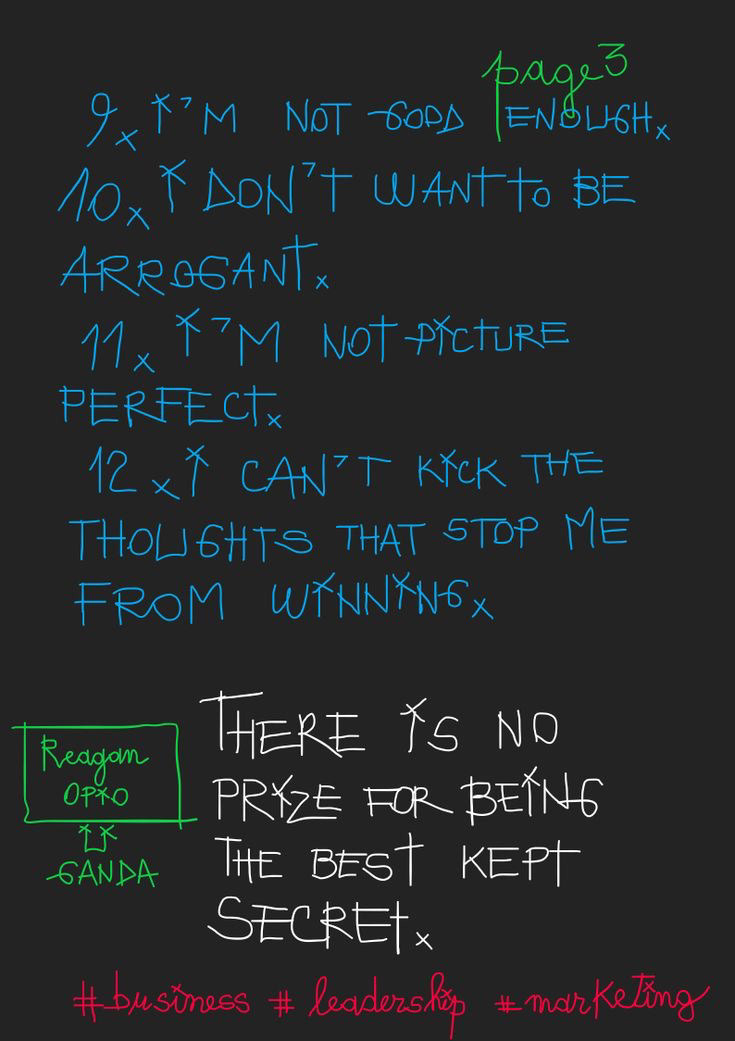 page 3
9. I'M NOT GOOD ENOUGH.
10. I DON'T WANT TO BE
ARROGANT.
11. I'M NOT PICTURE
PERFECT.
12. I CAN'T KICK THE
THOUGHTS THAT STOP ME
FROM WINNING.
THERE IS NO
PRIZE FOR BEING
THE BEST KEPT
SECRET.
Reagan
OPIO
GANDA
#business #leadership #marketing